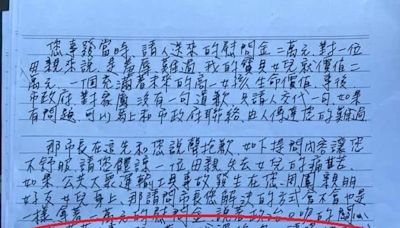 您事發當時，請人送來的慰問金二萬元，對一位
母親來說，是羞辱 難過，我的寶貝女兒就價值二
萬元，一個充滿未來的 女孩，生命價值，事後
市政府對 沒有一句道歉，只請人交代一句，如果
有問題，可以馬上和市政府聯絡，由人傳達您的難過
那市長在這先和您說聲抱歉，如下提問內容讓您
不舒服，請您體諒一位母親，失去女兒的痛苦
如果，公共大眾運輸工具事故發生在您，周圍親朋
好友 女兒身上，那請問市長您解決的方式 是不是也是
一樣 二萬元的慰問金 說